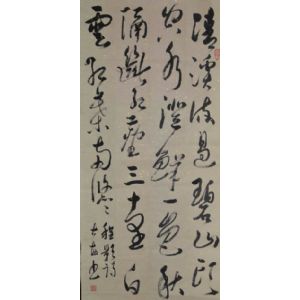 清溪流過碧山頭
空水澄鮮一色秋
隔斷紅塵三十里白
雲紅葉兩悠悠 程顥詩